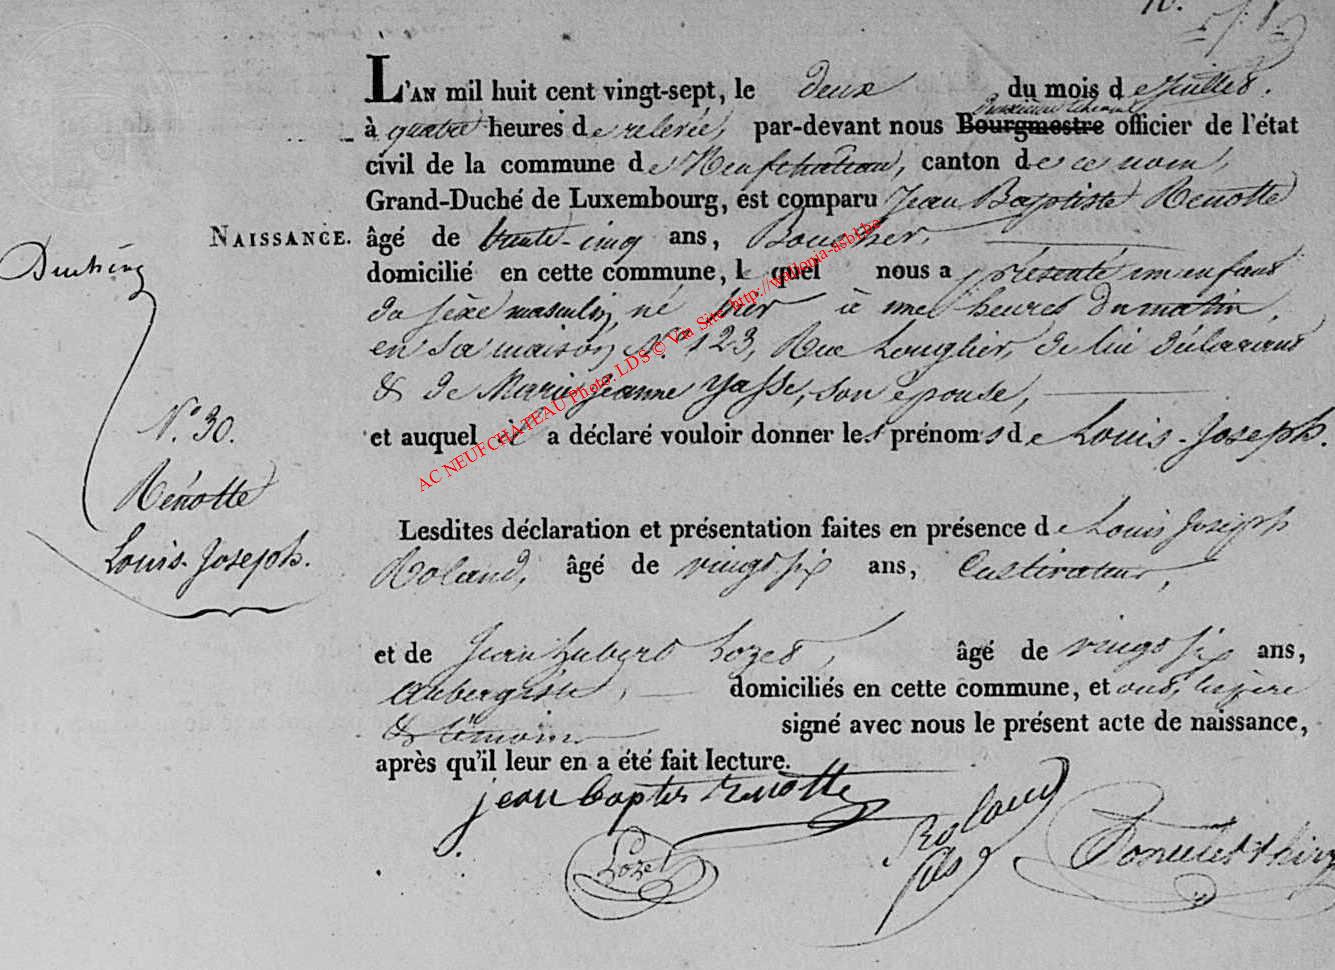 10.
L'AN mil huit cent vingt-sept, le deux du mois de juillet.
à quatre heures de relevée, par-devant nous Bourgmestre Deuxième Echevin officier de l'état
civil de la commune de Neufchateau, canton de ce nom,
Grand-Duché de Luxembourg, est comparu Jean Baptiste Renotte
NAISSANCE. âgé de trente-cinq ans, Boucher,
domicilié en cette commune, le quel nous a présenté un enfant
du sèxe masculin, né hier à une heures du matin,
en sa maison N.° 123, Rue Longlier, de lui déclarant
& de Marie Jeanne Gasse, son épouse,
et auquel il a déclaré vouloir donner les prénoms de Louis-Joseph.
N.° 30.
Rénotte
Louis-Joseph.
Lesdites déclaration et présentation faites en présence de Louis Joseph
Roland, âgé de vingt six ans, Cultivateur,
et de Jean hubert Lozet, âgé de vingt six ans,
aubergiste, domiciliés en cette commune, et ont, le père
& témoins signé avec nous le présent acte de naissance,
après qu'il leur en a été fait lecture.
jean baptis Renotte
Lozet
Roland
fils
AC NEUFCHATEAU Photo: LDS © Via Site http://wallonia-asbl.be